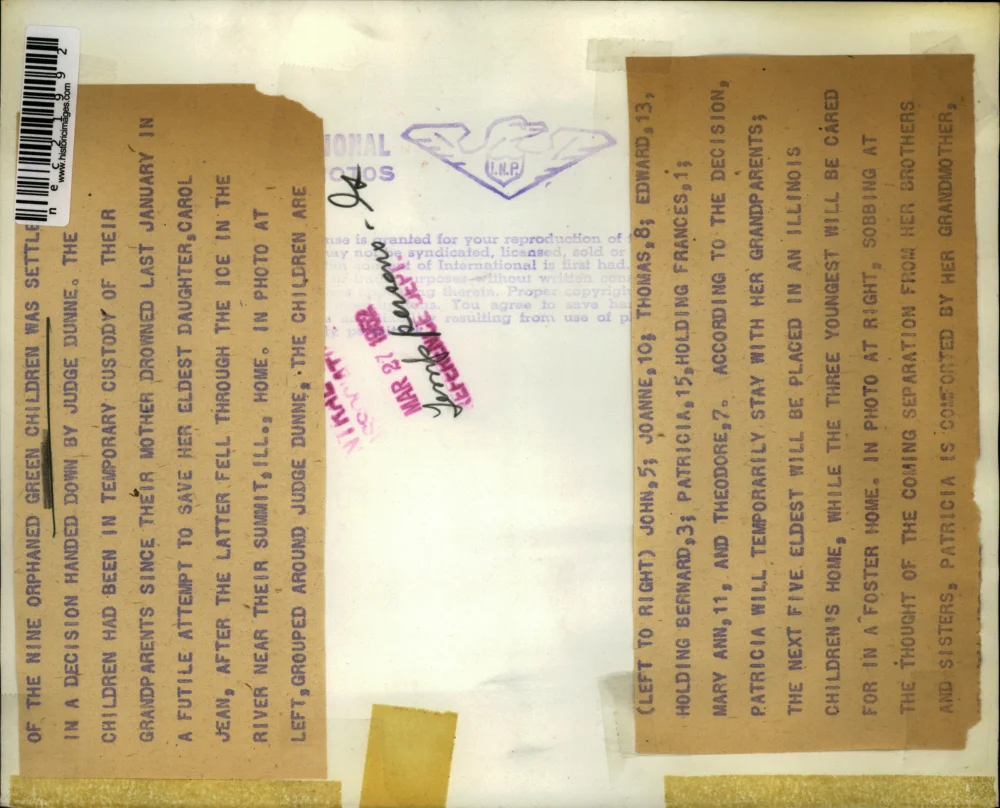 OF THE NINE ORPHANED GREEN CHILDREN WAS SETTLE
IN A DECISION HANDED DOWN BY JUDGE DUNNE. THE
CHILDREN HAD BEEN IN TEMPORARY CUSTODY OF THEIR
GRANDPARENTS SINCE THEIR MOTHER DROWNED LAST JANUARY IN
A FUTILE ATTEMPT TO SAVE HER ELDEST DAUGHTER,CAROL
JEAN, AFTER THE LATTER FELL THROUGH THE ICE IN THE
RIVER NEAR THEIR SUMMIT,ILL., HOME. IN PHOTO AT
LEFT,GROUPED AROUND JUDGE DUNNE, THE CHILDREN ARE
(LEFT TO RIGHT) JOHN,5; JOANNE,10; THOMAS,8; EDWARD,13,
HOLDING BERNARD,3; PATRICIA,15,HOLDING FRANCES,1;
MARY ANN,11, AND THEODORE,7. ACCORDING TO THE DECISION,
PATRICIA WILL TEMPORARILY STAY WITH HER GRANDPARENTS;
THE NEXT FIVE ELDEST WILL BE PLACED IN AN ILLINOIS
CHILDREN'S HOME, WHILE THE THREE YOUNGEST WILL BE CARED
FOR IN A FOSTER HOME. IN PHOTO AT RIGHT, SOBBING AT
THE THOUGHT OF THE COMING SEPARATION FROM HER BROTHERS
AND SISTERS, PATRICIA IS COMFORTED BY HER GRANDMOTHER,
www.historicimages.com
n e c 2 1 9 9 2
IONAL
OTOS
I.N.P.
is granted for your reproduction of
not be syndicated, licensed, sold or
of International is first had.
purposes without written
therein. Proper copyright
You agree to save
resulting from use of
MAR 27 1952
REFERENCE DEPT